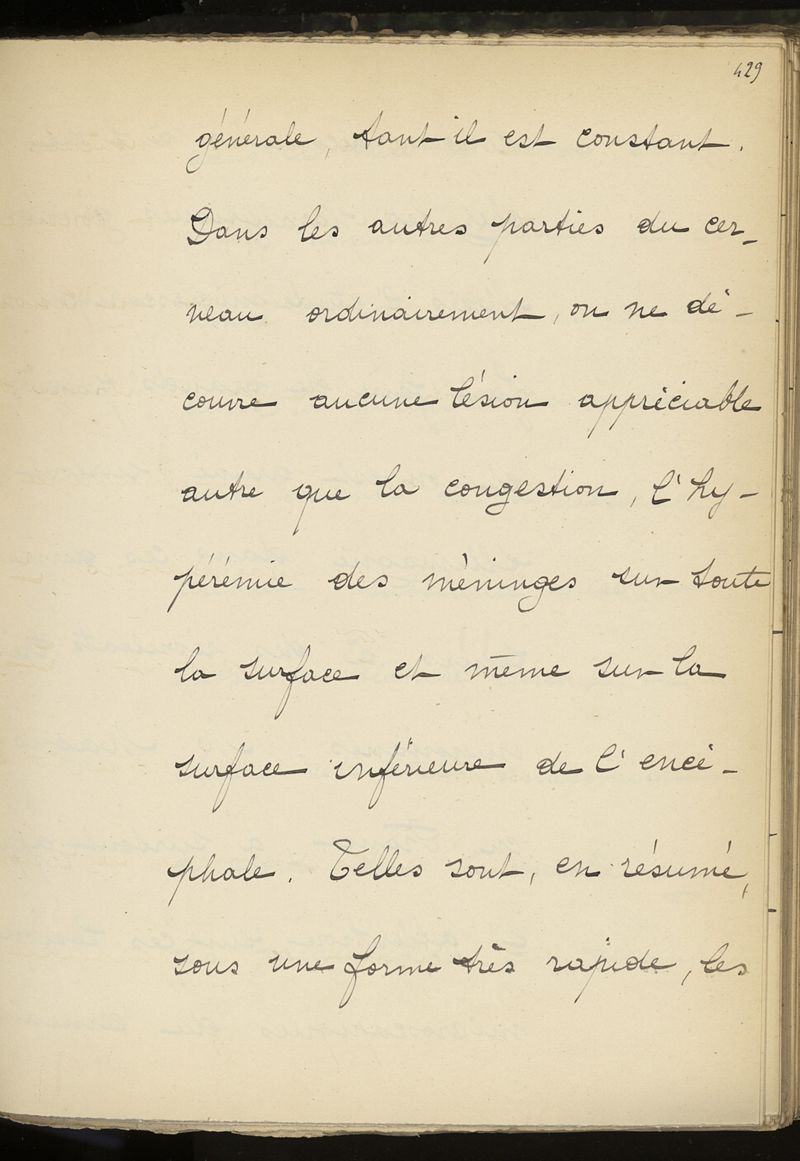 429
générale, tant il est constant.
Dans les autres parties du cer-
veau ordinairement, on ne dé-
couvre aucune lésion appréciable
autre que la congestion, l'hy-
pérémie des méninges sur toute
la surface et même sur la
surface inférieure de l'encé-
phale. Telles sont, en résumé,
sous une forme très rapide, les